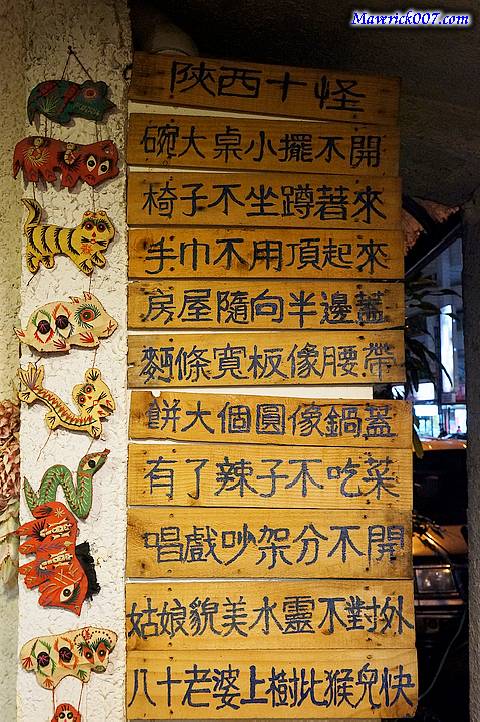 Maverick007.com
陝西十怪
碗大桌小擺不開
椅子不坐蹲著來
手巾不用頂起來
房屋隨向半邊蓋
麵條寬板像腰帶
餅大個圓像鍋蓋
有了辣子不吃菜
唱戲吵架分不開
姑娘貌美水靈不對外
八十老婆上樹比猴兒快